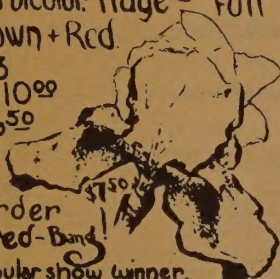 Huge - Full
own + Red.
10⁰⁰
5⁰
$7⁵⁰
rder
ed-Bang!
ular show winner.